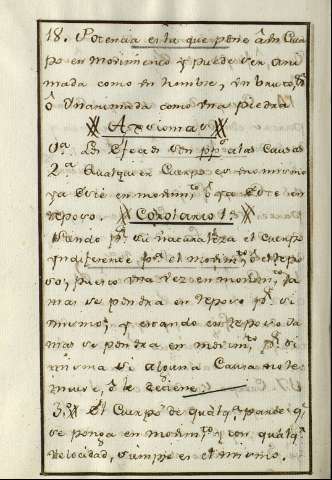 18. Potencia es la que pone â un Cuer
po en movimiento y puede ser ani
mada como un hombre, un bruto, &
ô Ynanimada como una piedra
Axiomas
1ª. Los Efectos son pp.ª las Causas
2.ª Qualquier Cuerpo es el mismo
ya esté en movim.to ô ya esté en
reposo. Corolario 1.º
Siendo p.r su naturaleza el cuerpo
Yndiferente p.ª el movim.to ô el repo
so, puesto una vez en movim.to Ja
mas se pondra en reposo p.r si
mismo; y estando en reposo Ja
mas se pondra en movim.to p.r si
mismo si alguna Causa no le
mueve, ô le detiene.
3.ª El Cuerpo de qualq.ª parte q.e
se ponga en movim.to y con qualq.ª
Velocidad, siempre es el mismo.